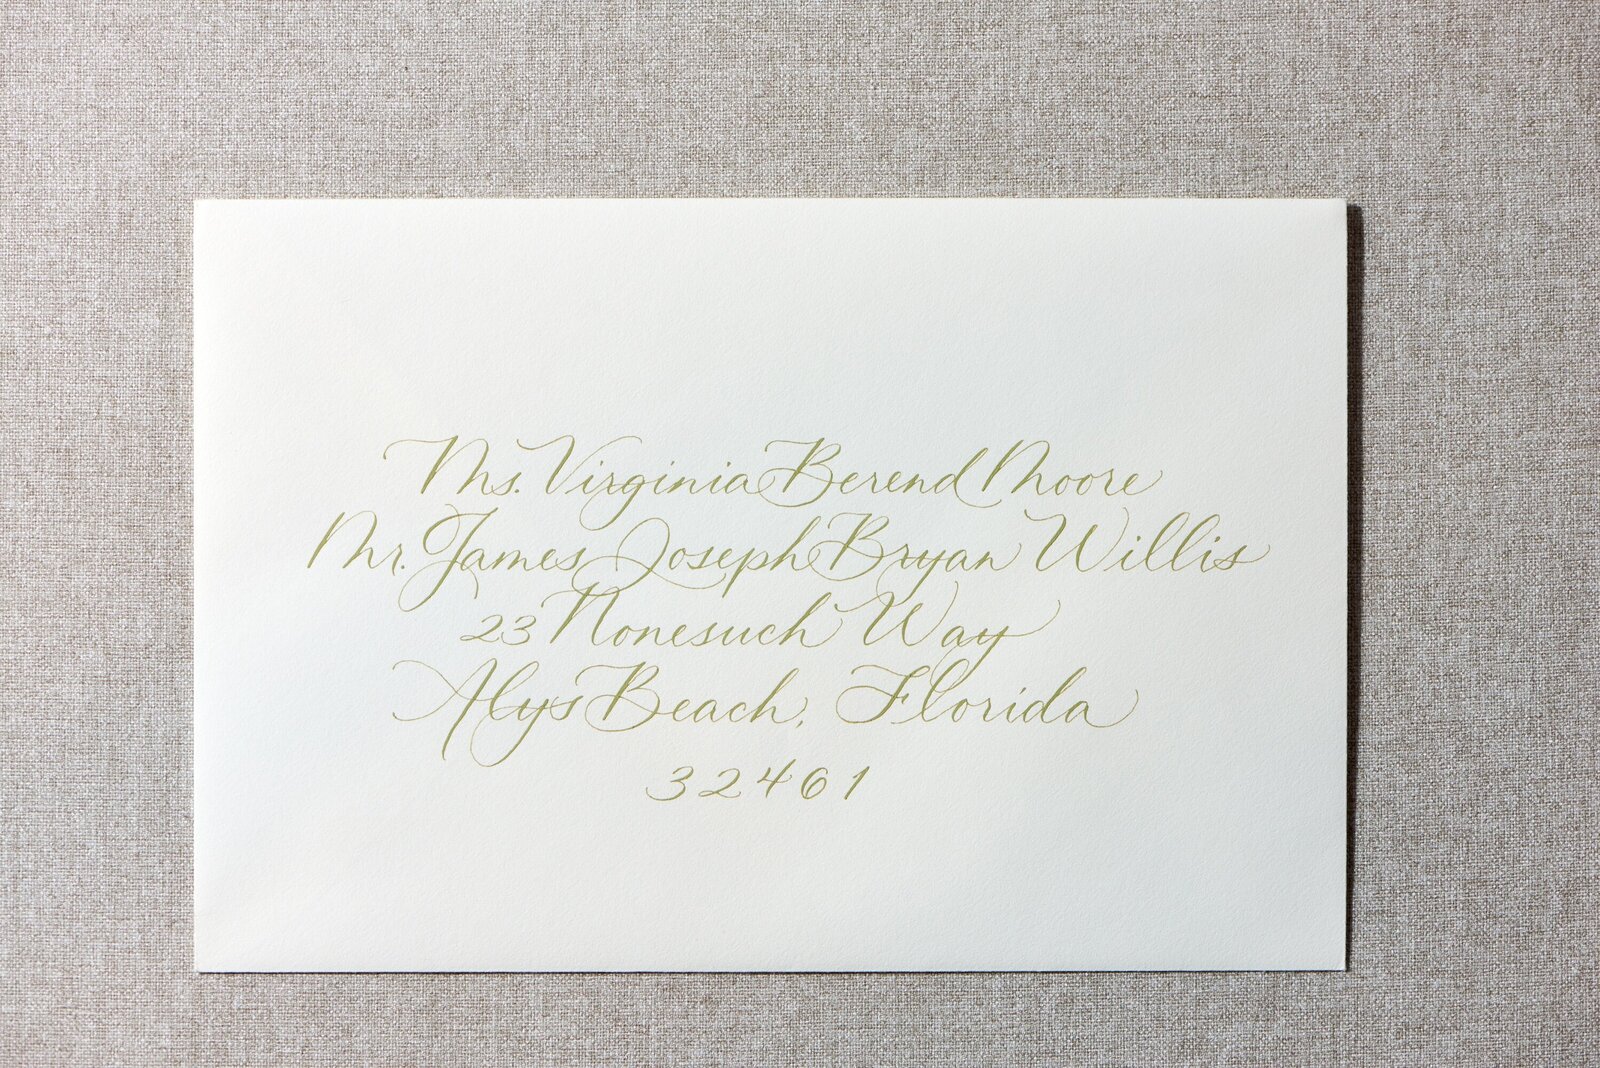 Ms. Virginia Berend Moore
Mr. James Joseph Bryan Willis
23 Nonesuch Way
Alys Beach, Florida
32461